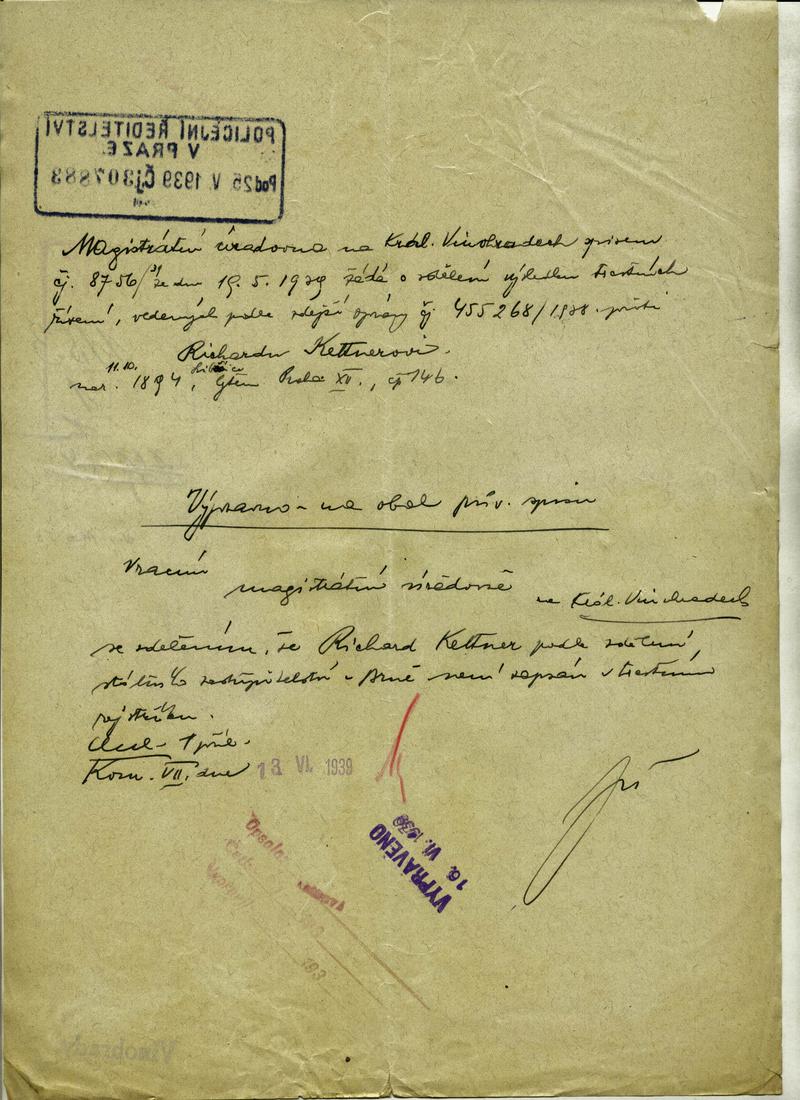 POLICEJNÍ ŘEDITELSTVÍ
V PRAZE.
Pod 25 V 1939 Čj 307883
Magistrátní úřadovna na Král. Vinohradech přisem
čj. 8756/ ze dne 19. 5. 1939 žádá o sdělení výsledku trestních
řízení, vedených podle zdejší zprávy čj 455268/1938 proti
Richardu Kettnerovi.
11.10.
nar. 1894, Praha XII., čp 146.
Výpravno - na obal přív. spisu
Vracím
magistrátní úřadovně na Král. Vinohradech
se sdělením, že Richard Kettner podle sdělení
státního zastupitelství v Brně není zapsán v trestním
rejstříku.
1 příl.
Kom. VII. dne 13 VI. 1939
VYPRAVENO
16. VI. 1939
Opsala:
Vinohrady